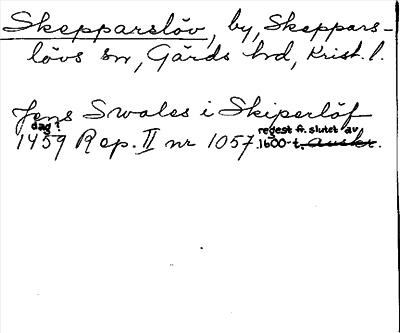 Skepparslöv, by, Skeppars-
lövs sn, Gärds hd, Krist. l.
Jens Swales i Skiperlöf
dag?
1459 Rep. II nr 1057 regest fr. slutet av
1600-t. avskr.